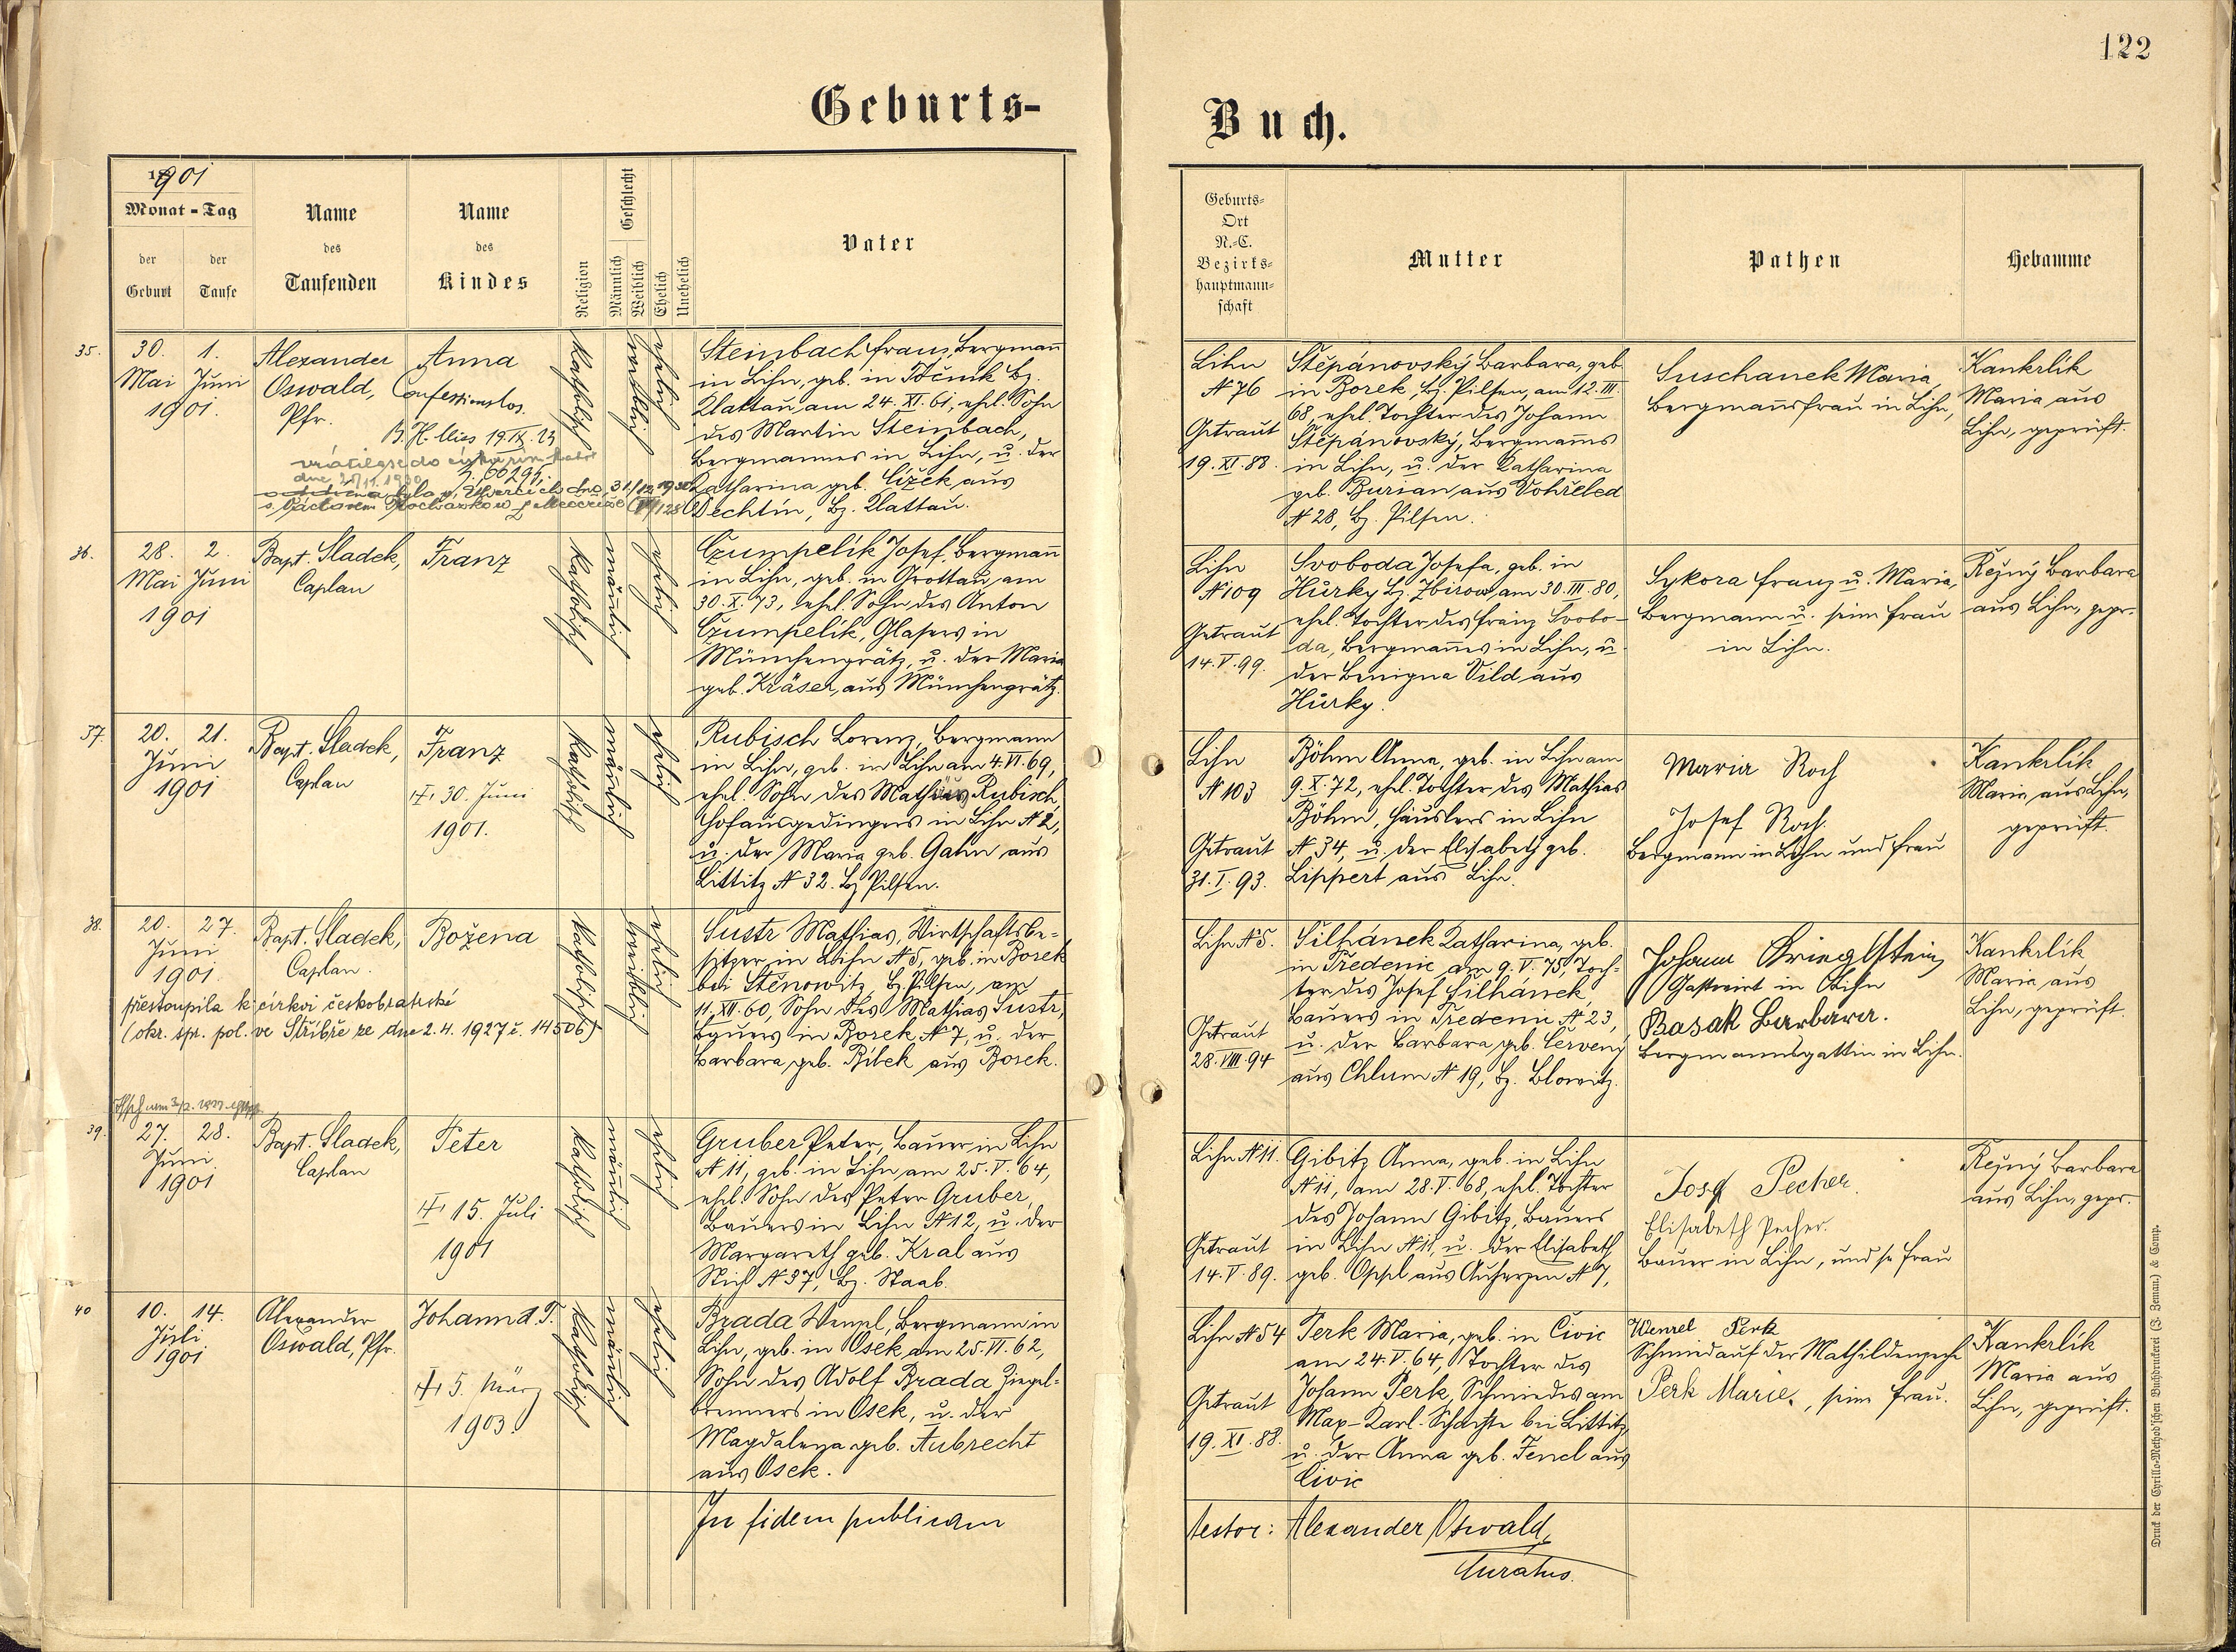 122
Geburts-
Buch.
1901
Monat - Tag
der Geburt
der Taufe
Name des Taufenden
Name des Kindes
Religion
Geschlecht
Männlich
Weiblich
Ehelich
Unehelich
Vater
Geburts-
Ort
N.-C.
Bezirks-
hauptmann-
schaft
Mutter
Pathen
Hebamme
35.
30. Mai
1. Juni
1901.
Alexander
Oswald,
Pfr.
Anna
Confessionslos.
B. H. Mies 19.IX.23
katholisch
weiblich
ehelich
Steinbach Franz, Bergmann
in Lihn, geb. in Točnik Bz.
Klattau, am 24. XI. 61, ehel. Sohn
des Martin Steinbach,
Bergmannes in Lihn, u. der
Katharina geb. Čížek aus
Dechtín, Bz. Klattau.
Lihn
N 76
Getraut
19. XI. 88.
Štěpánovský Barbara, geb.
in Borek, Bz. Pilsen, am 12. III.
68, ehel. Tochter des Johann
Štěpánovský, Bergmanns
in Lihn, u. der Katharina
geb. Burian aus Vohřeled
N 28, Bz. Pilsen.
Suschanek Maria,
Bergmannsfrau in Lihn,
Kankrlik
Maria aus
Lihn, geprüft.
36.
28. Mai
2. Juni
1901
Bapt. Sladek,
Caplan
Franz
katholisch
männlich
ehelich
Czumpelík Josef, Bergmann
in Lihn, geb. in Grottau, am
30. X. 73, ehel. Sohn des Anton
Czumpelík, Glasers in
Münchengrätz, u. der Maria
geb. Kräser, aus Münchengrätz.
Lihn
N 109
Getraut
14. V. 99.
Svoboda Josefa, geb. in
Hůrky Bz. Zbirow, am 30. III. 80,
ehel. Tochter des Franz Svobo-
da, Bergmannes in Lihn, u.
der Benigna Vild aus
Hůrky.
Sykora Franz u. Maria,
Bergmann u. seine Frau
in Lihn.
Režný Barbara
aus Lihn, gepr.
37.
20. Juni
21.
1901
Bapt. Sladek,
Caplan
Franz
30. Juni
1901.
katholisch
männlich
ehelich
Rubisch Lorenz, Bergmann
in Lihn, geb. in Lihn am 4. VI. 69,
ehel. Sohn des Mathias Rubisch,
Hofausgedingers in Lihn N 2,
u. der Maria geb. Gahn aus
Littitz N 32. Bz Pilsen.
Lihn
N 103
Getraut
31. I. 93.
Böhm Anna, geb. in Lihn am
9. X. 72, ehel. Tochter des Mathias
Böhm, Häuslers in Lihn
N 34, u. der Elisabeth geb.
Lippert aus Lihn.
Maria Roch
Josef Roch.
Bergmann in Lihn und Frau
Kankrlik
Maria, aus Lihn,
geprüft.
38.
20. Juni
27.
1901.
Bapt. Sladek,
Caplan.
Božena
přestoupila k církvi českobratrské
(okr. spr. pol. ve Stříbře ze dne 2. 4. 1927 č. 14506)
katholisch
weiblich
ehelich
Šustr Mathias, Wirtschaftsbe-
sitzer in Lihn N 5, geb. in Borek
bei Stěnowitz, Bz. Pilsen, am
11. XII. 60, Sohn des Mathias Šustr,
Bauers in Borek N 7, u. der
Barbara, geb. Bílek aus Borek.
Lihn N 5.
Getraut
28. VIII. 94
Šilhánek Katharina, geb.
in Předenic am 9. V. 75, Toch-
ter des Josef Šilhánek,
Bauers in Předenic N 23,
u. der Barbara, geb. Červený
aus Chlum N 19, Bz. Blowitz.
Johann Krieglstein
Gastwirt in Lihn
Basak Barbara.
Bergmannsgattin in Lihn.
Kankrlik
Maria aus
Lihn, geprüft.
39.
27. Juni
28.
1901
Bapt. Sladek,
Caplan
Peter
15. Juli
1901
katholisch
männlich
ehelich
Gruber Peter, Bauer in Lihn
N 11, geb. in Lihn am 25. V. 64,
ehel. Sohn des Peter Gruber,
Bauers in Lihn N 12, u. der
Margareth geb. Kral aus
Stich N 37, Bz. Staab.
Lihn N 11.
Getraut
14. V. 89.
Gibitz Anna, geb. in Lihn
N 11, am 28. V. 68, ehel. Tochter
des Johann Gibitz, Bauers
in Lihn N 11, u. der Elisabeth
geb. Oppl aus Auherzen N 7,
Josef Pecher.
Elisabeth Pecher.
Bauer in Lihn, und se Frau
Režný Barbara
aus Lihn, gepr.
40
10. Juli
14.
1901
Alexander
Oswald, Pfr.
Johann d. T.
5. März
1903.
katholisch
männlich
ehelich
Brada Wenzel, Bergmann in
Lihn, geb. in Osek am 25. VI. 62,
Sohn des Adolf Brada, Ziegel-
brenners in Osek, u. der
Magdalena geb. Aubrecht
aus Osek.
Lihn N 54
Getraut
19. XI. 88.
Perk Maria, geb. in Čivic
am 24. V. 64, Tochter des
Johann Perk, Schmiedes am
Max-Karl-Schachte bei Littitz,
u. der Anna geb. Fencl aus
Čivic
Wenzel Perk
Schmied auf der Mathildenzeche
Perk Marie, seine Frau.
Kankrlik
Maria aus
Lihn, geprüft.
In fidem publicam
testor: Alexander Oswald,
Curatus.
Druck der Cyrillo-Method'schen Buchdruckerei (J. Zeman) & Comp.